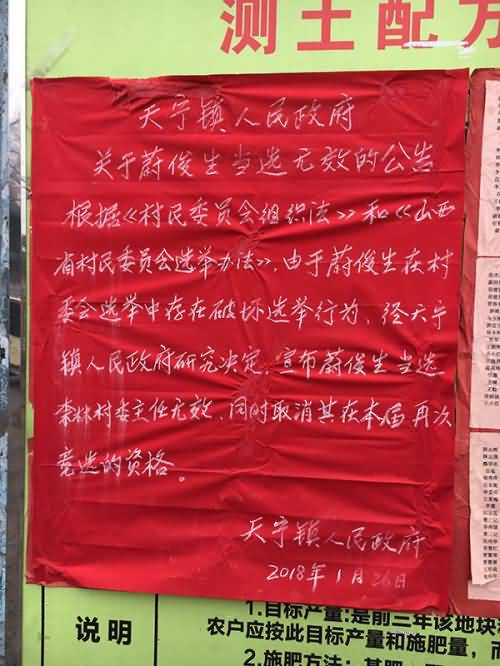 测土配方
天宁镇人民政府
关于蔚俊生当选无效的公告
根据《村民委员会组织法》和《山西
省村民委员会选举办法》,由于蔚俊生在村
委会选举中存在破坏选举行为、经天宁
镇人民政府研究决定,宣布蔚俊生当选
李林村委主任无效,同时取消其在本届再次
竞选的资格。
天宁镇人民政府
2018年1月26日
说明
1.目标产量:是前三年该地块
农户应按此目标产量和施肥量,而
2.施肥方法: